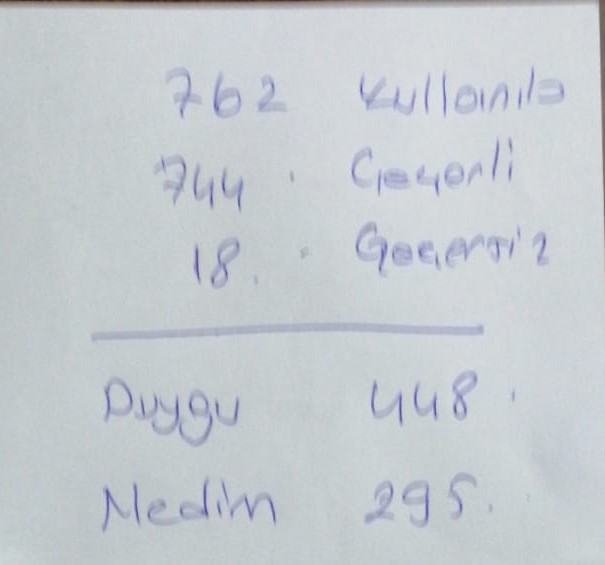 762 Kullanıla
744 Geçerli
18. Geçersiz
Duygu 448
Nedim 295.